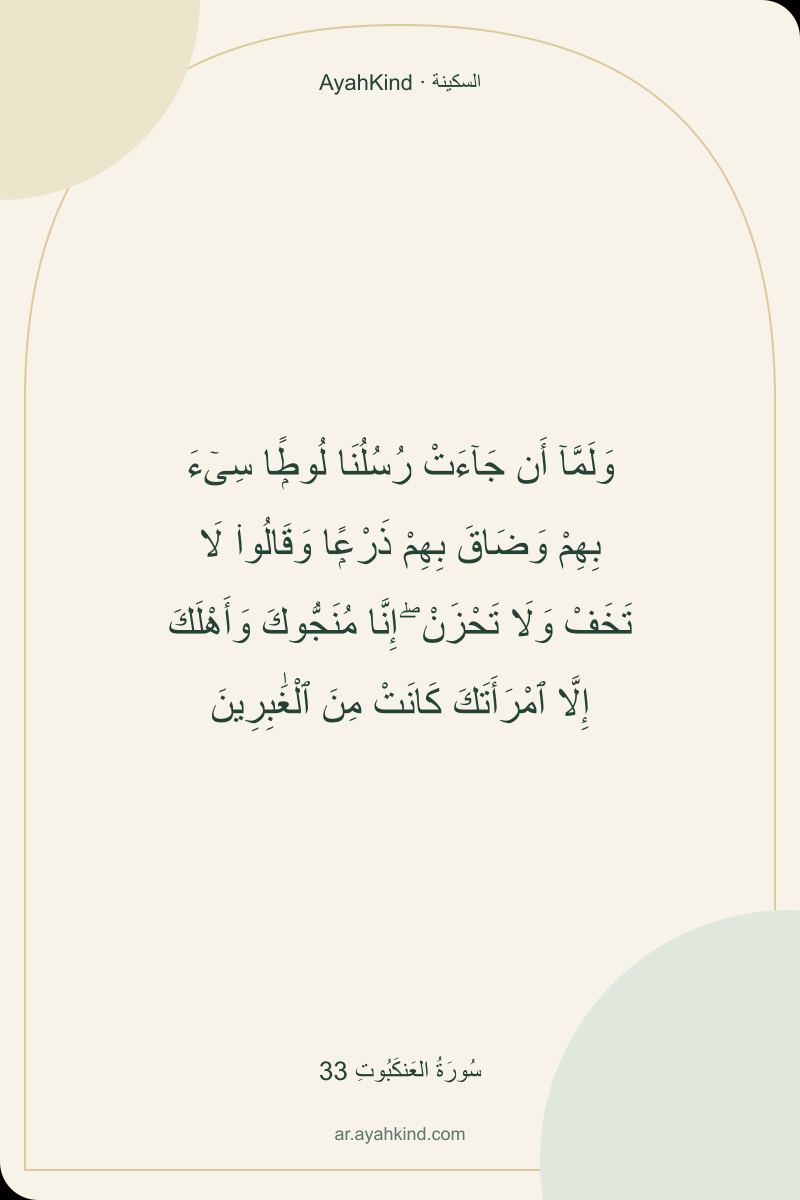 AyahKind · السكينة
وَلَمَّآ أَن جَآءَتْ رُسُلُنَا لُوطًۭا سِىٓءَ
بِهِمْ وَضَاقَ بِهِمْ ذَرْعًۭا وَقَالُوا۟ لَا
تَخَفْ وَلَا تَحْزَنْ ۖ إِنَّا مُنَجُّوكَ وَأَهْلَكَ
إِلَّا ٱمْرَأَتَكَ كَانَتْ مِنَ ٱلْغَٰبِرِينَ
سُورَةُ العَنكَبُوتِ 33
ar.ayahkind.com